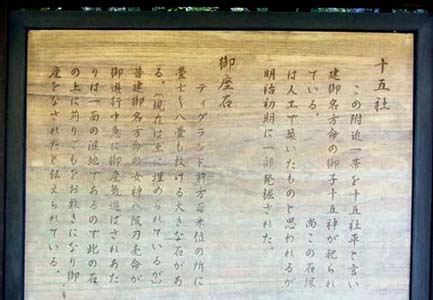 十五社
この附近一帯を十五社平と言い
建御名方命の御子十五神が祀られ
ている。　尚この石塚
は人工で築いたものと思われるが
明治初期に一部発掘された。
御座石
ティグランド斜方百米位の所に
畳七〜八畳も敷ける大きな石があ
る。（現在は土に埋められているが）
昔建御名方命の女神八坂刀売命が
御遊行中急に御産気遊ばされあた
りは一面の湿地であるので此の石
の上に刈りごもをお敷きになり御
産をなされたと伝えられている。